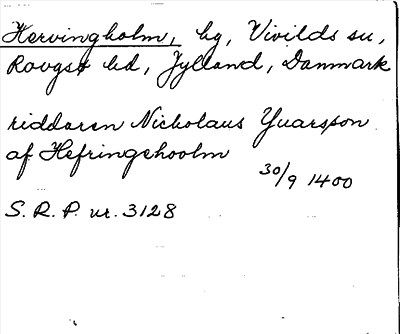 Hervingholm, hg, Vivilds sn,
Rovgsø hd, Jylland, Danmark
riddaren Nicholaus Yuarsson
af Hefringehoolm
30/9 1400
S.R.P. nr. 3128